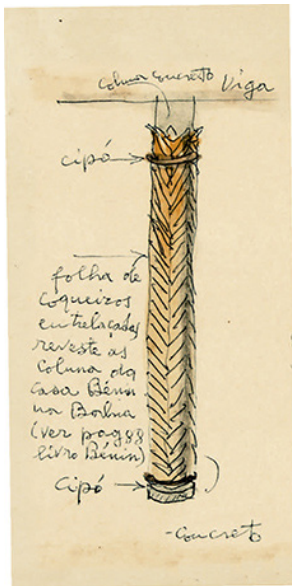 coluna concreto
Viga
cipó
folha de
coqueiros
entrelaçadas
reveste as
coluna da
casa Bénin
na Bahia
(ver pag 88
livro Bénin)
cipó
-concreto